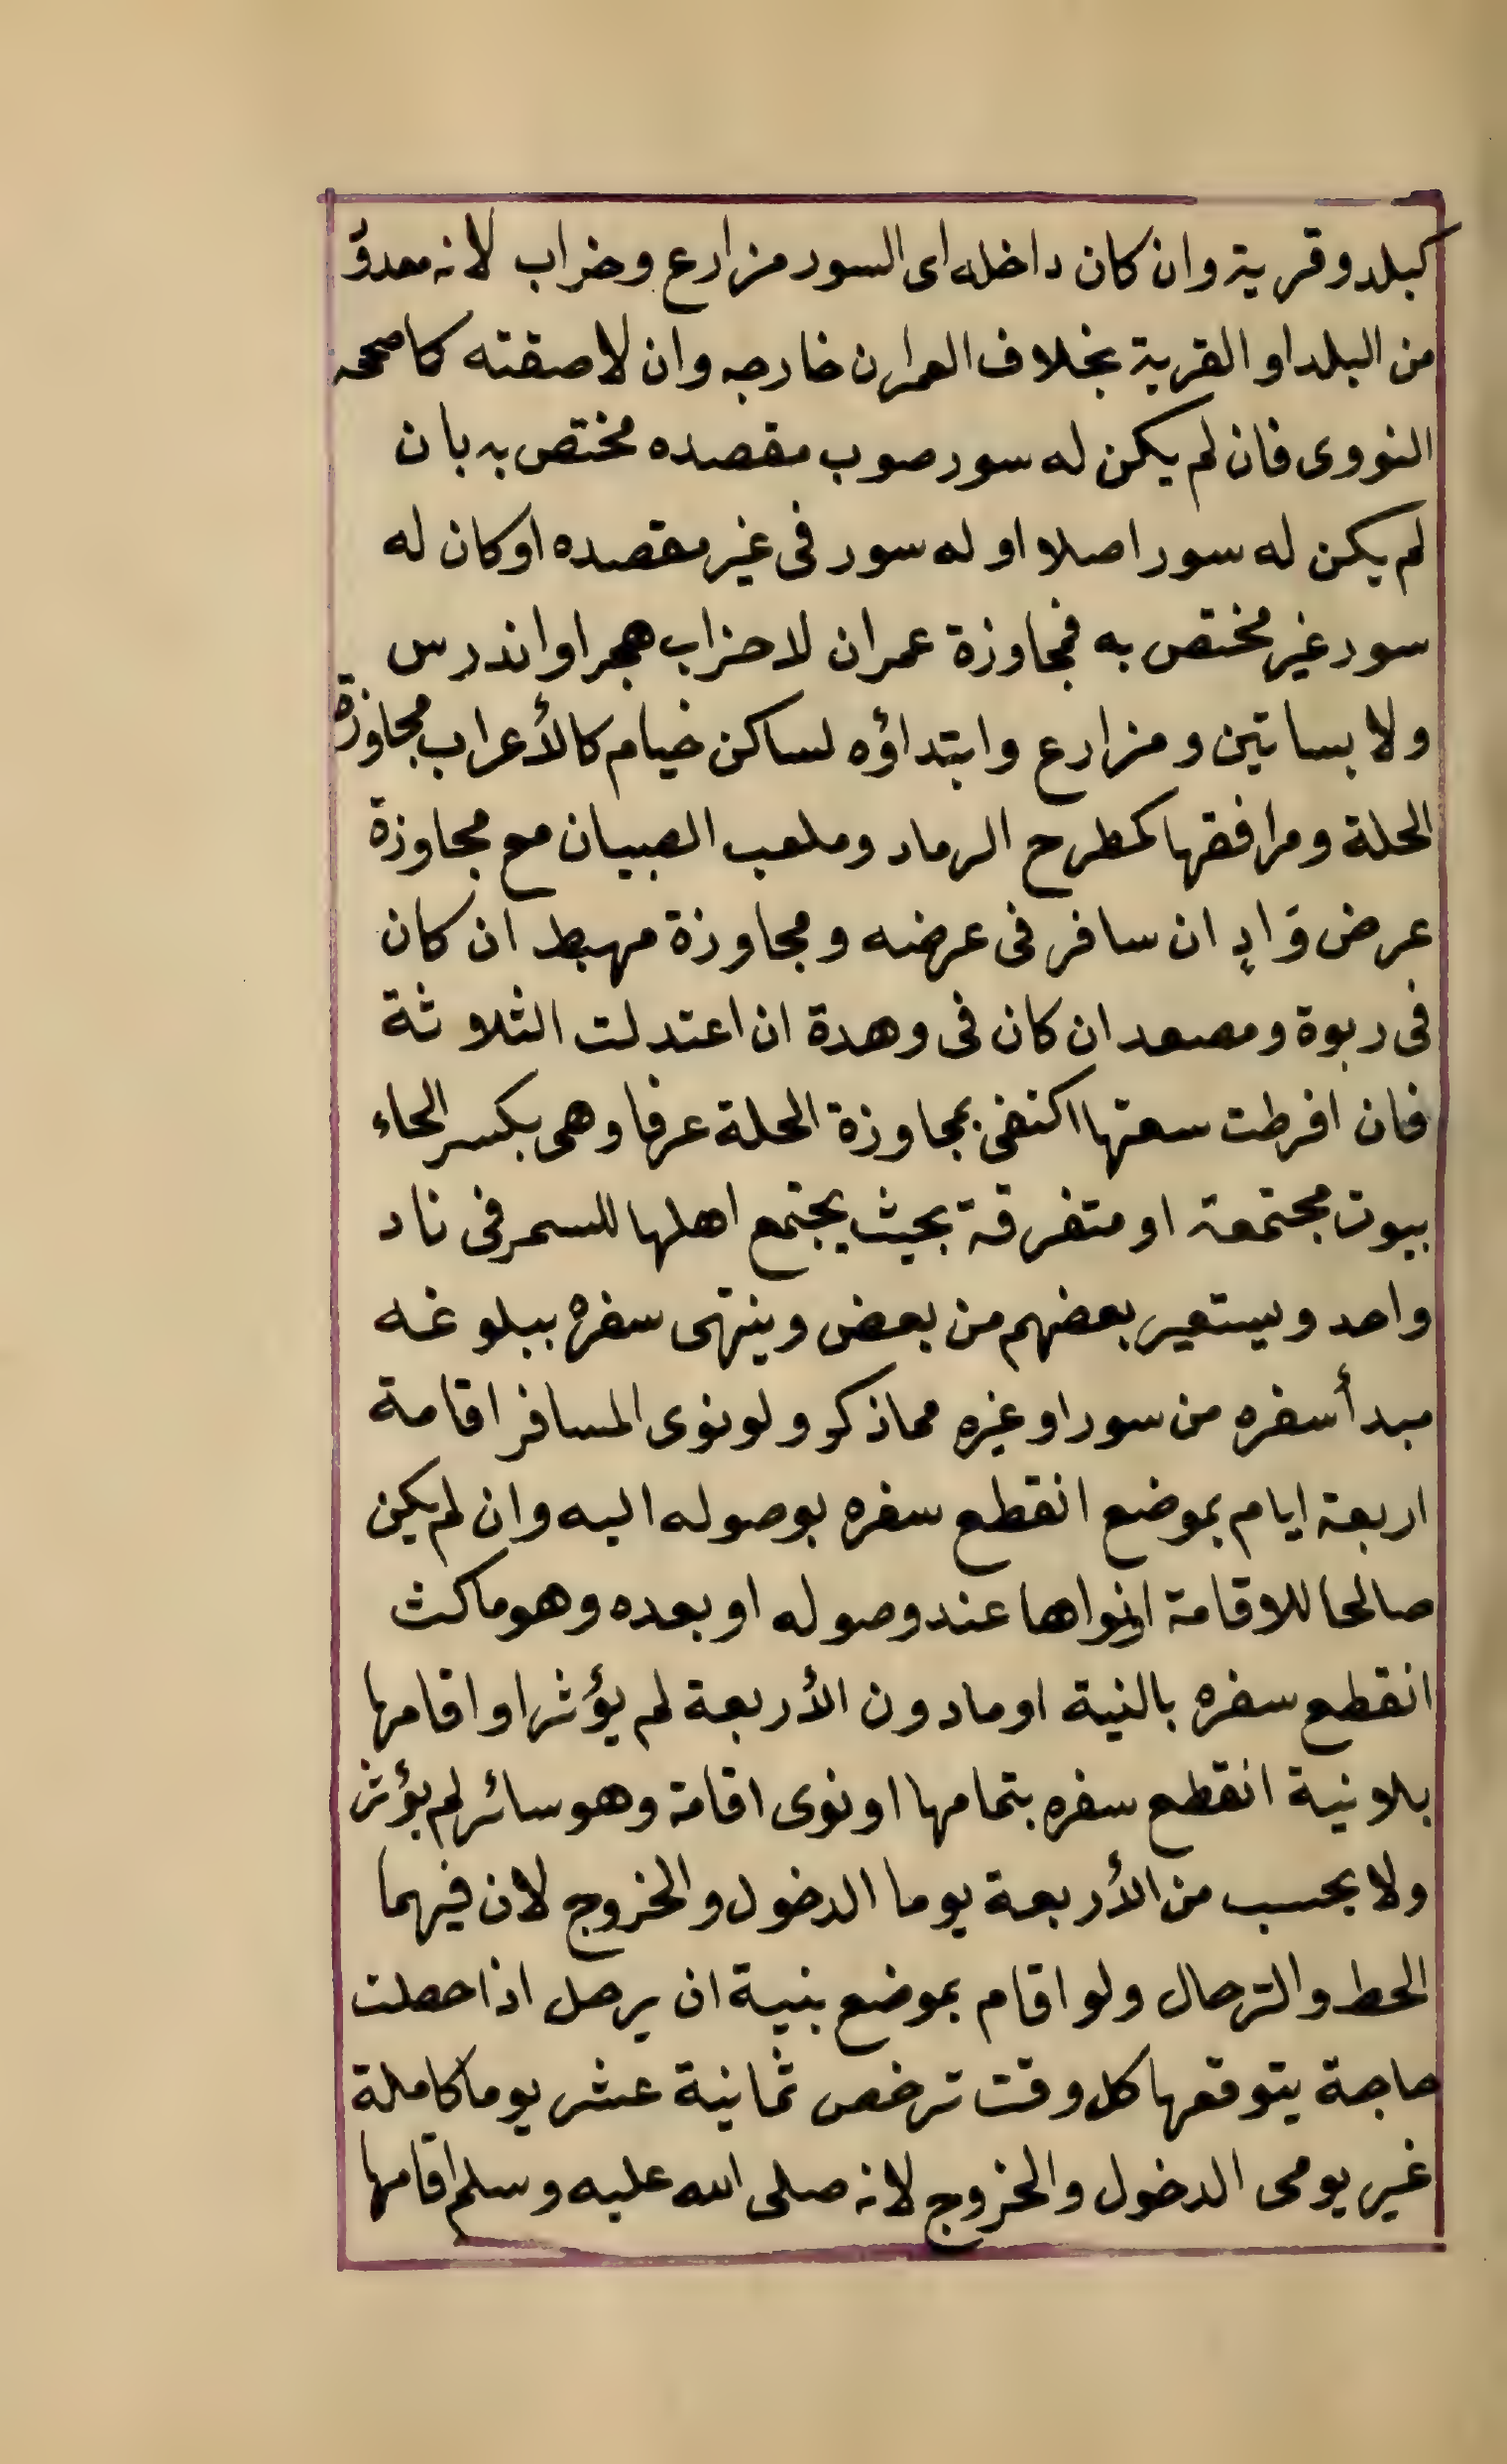 كبلد وقرية وان كان داخله اى السور مزارع وخراب لانه معدوُ
من البلد او القرية بخلاف العمران خارجه وان لاصقته كما صححه
النووى فان لم يكن له سور صوب مقصده مختص به بان
لم يكن له سور اصلا او له سور فى غير مقصده او كان له
سور غير مختص به فمجاوزة عمران لا خراب هجر او اندرس
ولا بساتين ومزارع وابتداؤه لساكن خيام كالأعراب مجاوزة
الحلة ومرافقها كمطرح الرماد وملعب الصبيان مع مجاوزة
عرض وَادٍ ان سافر فى عرضه ومجاوزة مهبط ان كان
فى ربوة ومصعد ان كان فى وهدة ان اعتدلت الثلاثة
فان افرطت سعتها اكتفى بمجاوزة الحلة عرفا وهى بكسر الحاء
بيوت مجتمعة او متفرقة بحيث يجتمع اهلها للسمر فى ناد
واحد ويستعير بعضهم من بعض وينتهى سفره ببلوغه
مبدأ سفره من سور او غيره مما ذكر ولو نوى المسافر اقامة
اربعة ايام بموضع انقطع سفره بوصوله اليه وان لم يكن
صالحا للاقامة او نواها عند وصوله او بعده وهو ماكث
انقطع سفره بالنية او مادون الأربعة لم يؤثر او اقامها
بلا نية انقطع سفره بتمامها او نوى اقامة وهو سائر لم يؤثر
ولا يحسب من الأربعة يوما الدخول والخروج لان فيهما
الحط والترحال ولو اقام بموضع بنية ان يرحل اذا حصلت
حاجة يتوقعها كل وقت ترخص ثمانية عشر يوما كاملة
غير يومى الدخول والخروج لانه صلى الله عليه وسلم اقامها